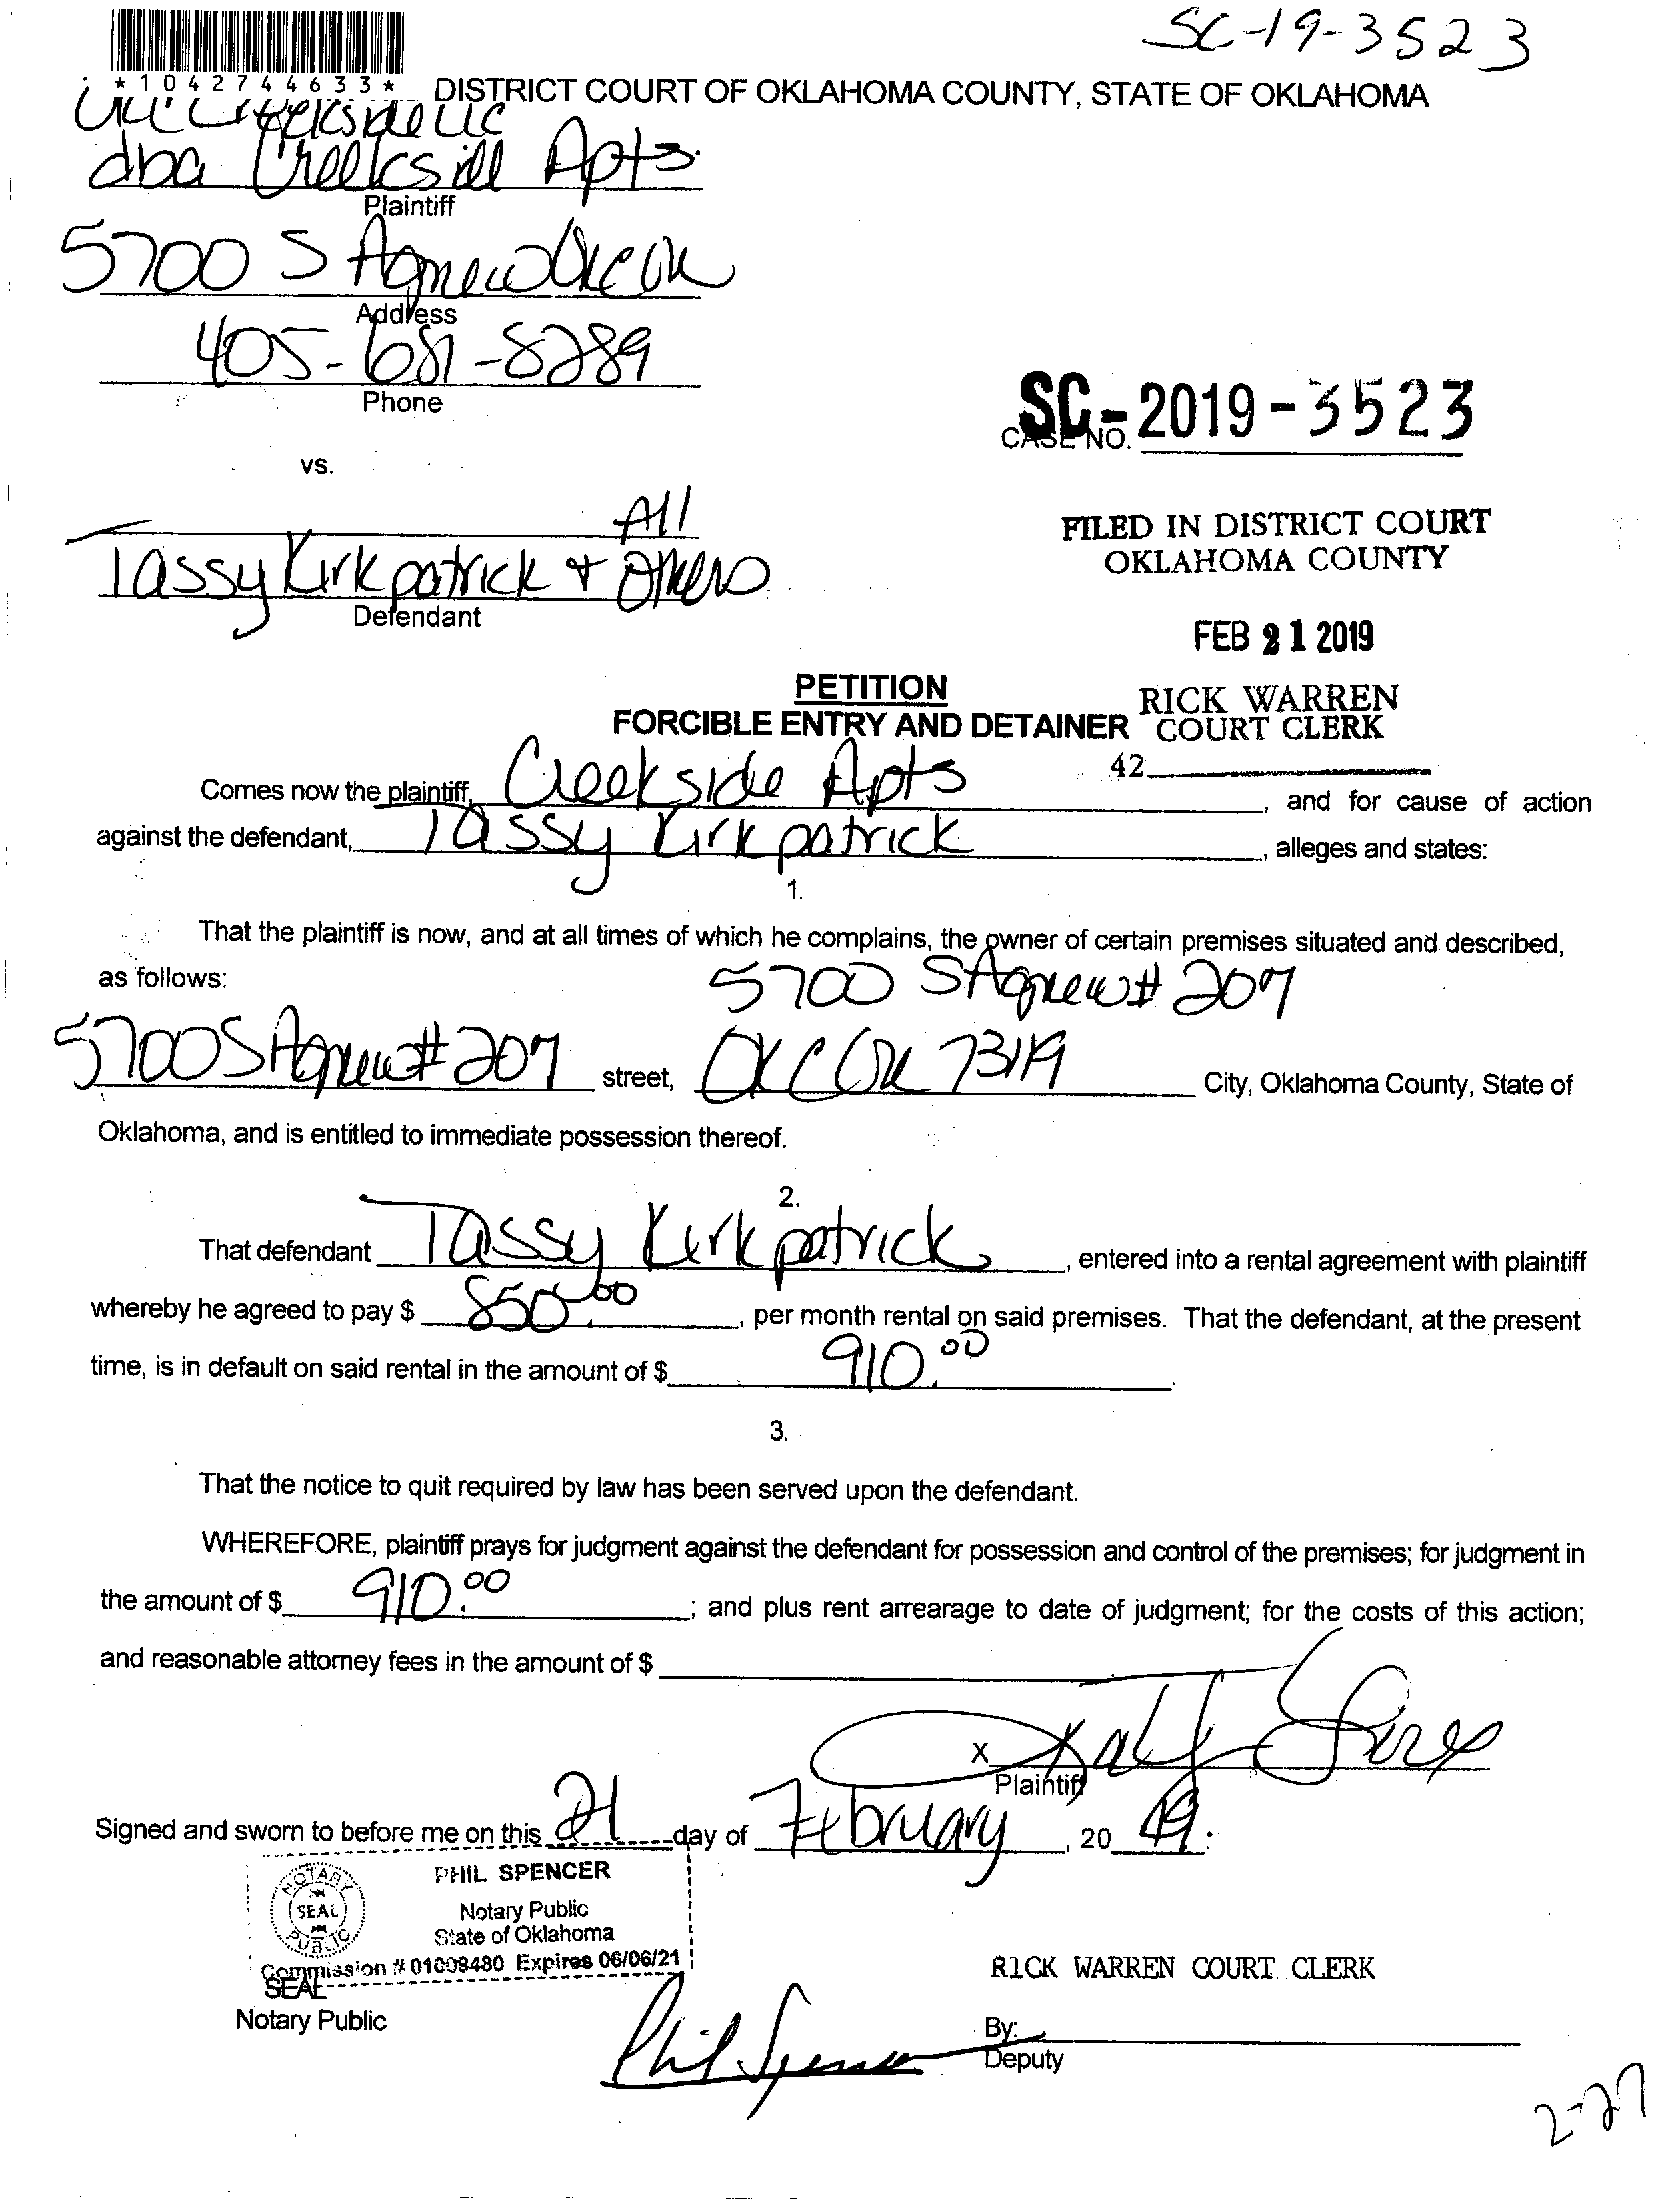 SC-19-3523
*1042744633*
DISTRICT COURT OF OKLAHOMA COUNTY, STATE OF OKLAHOMA
LLC
dba Creekside Apts
Plaintiff
5700 S Agnew OKC OK
Address
405-681-8289
Phone
SC-2019-3523
CASE NO.
vs.
All
Tassy Kirkpatrick + Others
Defendant
FILED IN DISTRICT COURT
OKLAHOMA COUNTY
FEB 21 2019
RICK WARREN
COURT CLERK
42
PETITION
FORCIBLE ENTRY AND DETAINER
Comes now the plaintiff, Creekside Apts, and for cause of action
against the defendant, Tassy Kirkpatrick, alleges and states:
1.
That the plaintiff is now, and at all times of which he complains, the owner of certain premises situated and described,
as follows:
5700 S Agnew # 207
5700 S Agnew # 207 street, OKC OK 73119 City, Oklahoma County, State of
Oklahoma, and is entitled to immediate possession thereof.
2.
That defendant Tassy Kirkpatrick, entered into a rental agreement with plaintiff
whereby he agreed to pay $ 850.00, per month rental on said premises. That the defendant, at the present
time, is in default on said rental in the amount of $ 910.00
3.
That the notice to quit required by law has been served upon the defendant.
WHEREFORE, plaintiff prays for judgment against the defendant for possession and control of the premises; for judgment in
the amount of $ 910.00; and plus rent arrearage to date of judgment; for the costs of this action;
and reasonable attorney fees in the amount of $
X
Plaintiff
Signed and sworn to before me on this 21 day of February, 20 19.
PHIL SPENCER
Notary Public
State of Oklahoma
Commission # 01008480 Expires 06/06/21
NOTARY
SEAL
PUBLIC
SEAL
Notary Public
Phil Spencer
RICK WARREN COURT CLERK
By:
Deputy
2-27